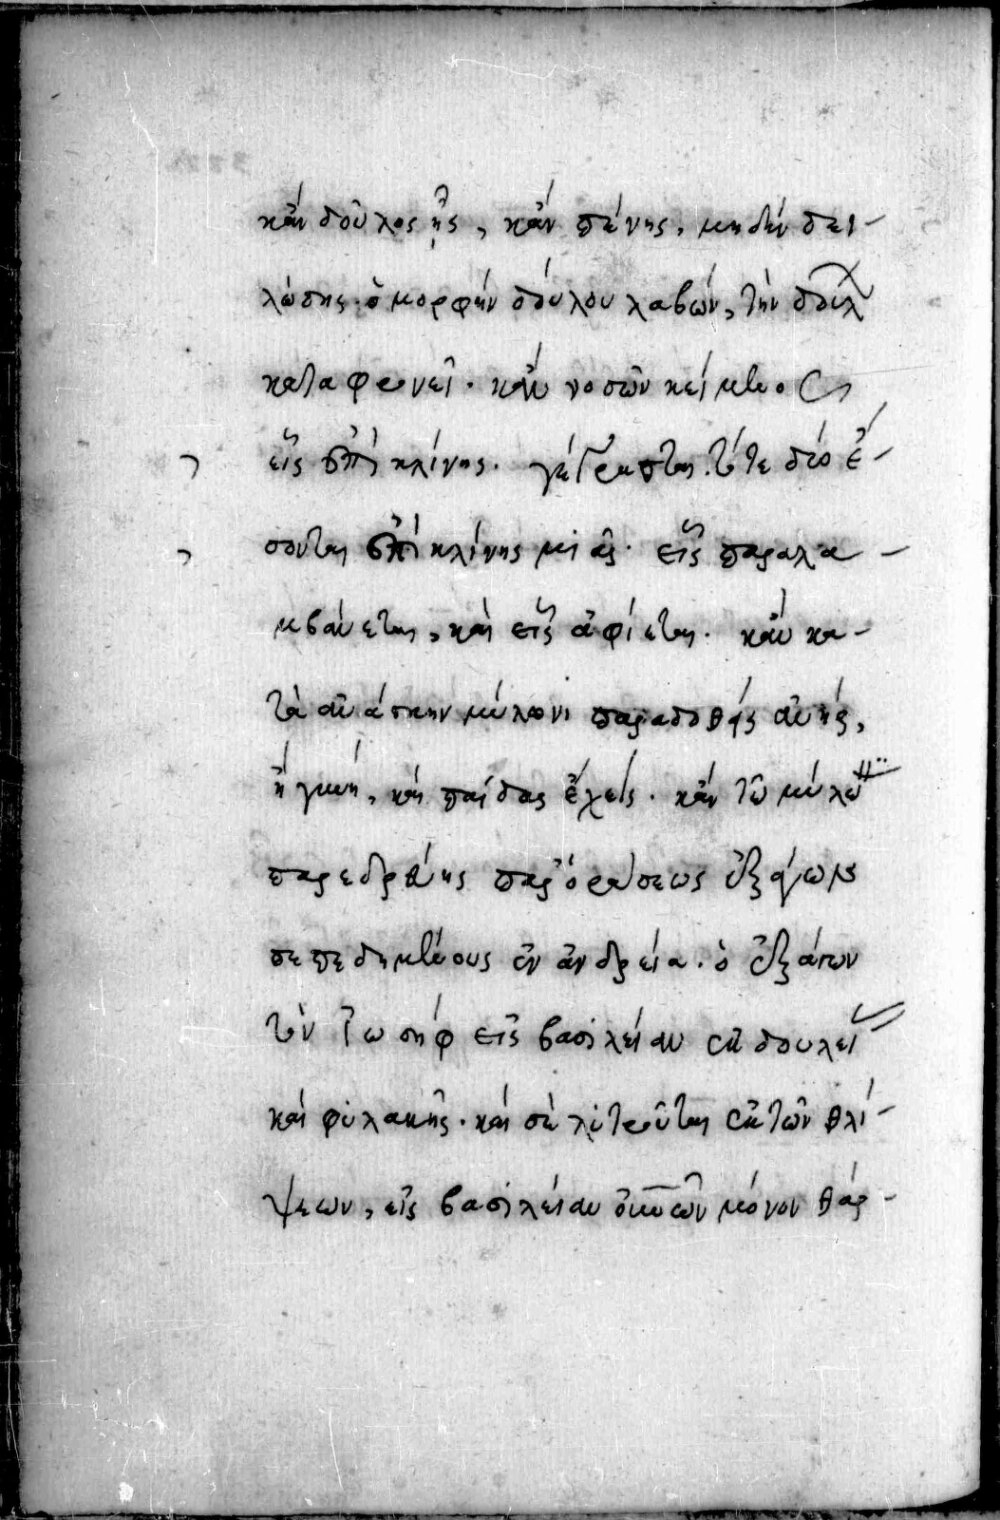 κἂν δοῦλος ῇς, κἂν πένης, μηδὲν δει-
λιάσης. ὁ μορφὴν δούλου λαβών, τὴν δουλ
καταφρονεῖ. κἂν νοσῶν κείμενος
εἷς ἐπὶ κλίνης. γέγραπται. τότε δύο ἔ-
σονται ἐπὶ κλίνης μιᾶς. εἷς παραλα-
μβάνεται, καὶ εἷς ἀφίεται. κἂν κα-
τὰ ἀνάγκην μύλωνι παραδοθῇς ἀνὴρ,
ἢ γυνή, καὶ παῖδας ἔχεις. κἂν τῷ μύλω
παρεδρεύης παρ' ὁράσεως ἐξάγων
πεπεδημένους ἐν ἀνδρεία. ὁ ἐξάγων
τὸν Ἰωσὴφ εἰς βασιλείαν ἐκ δουλεί
καὶ φυλακῆς. καὶ σὲ λυτροῦται ἐκ τῶν θλί-
ψεων, εἰς βασιλείαν οὐνῶν μόνον θάρ-